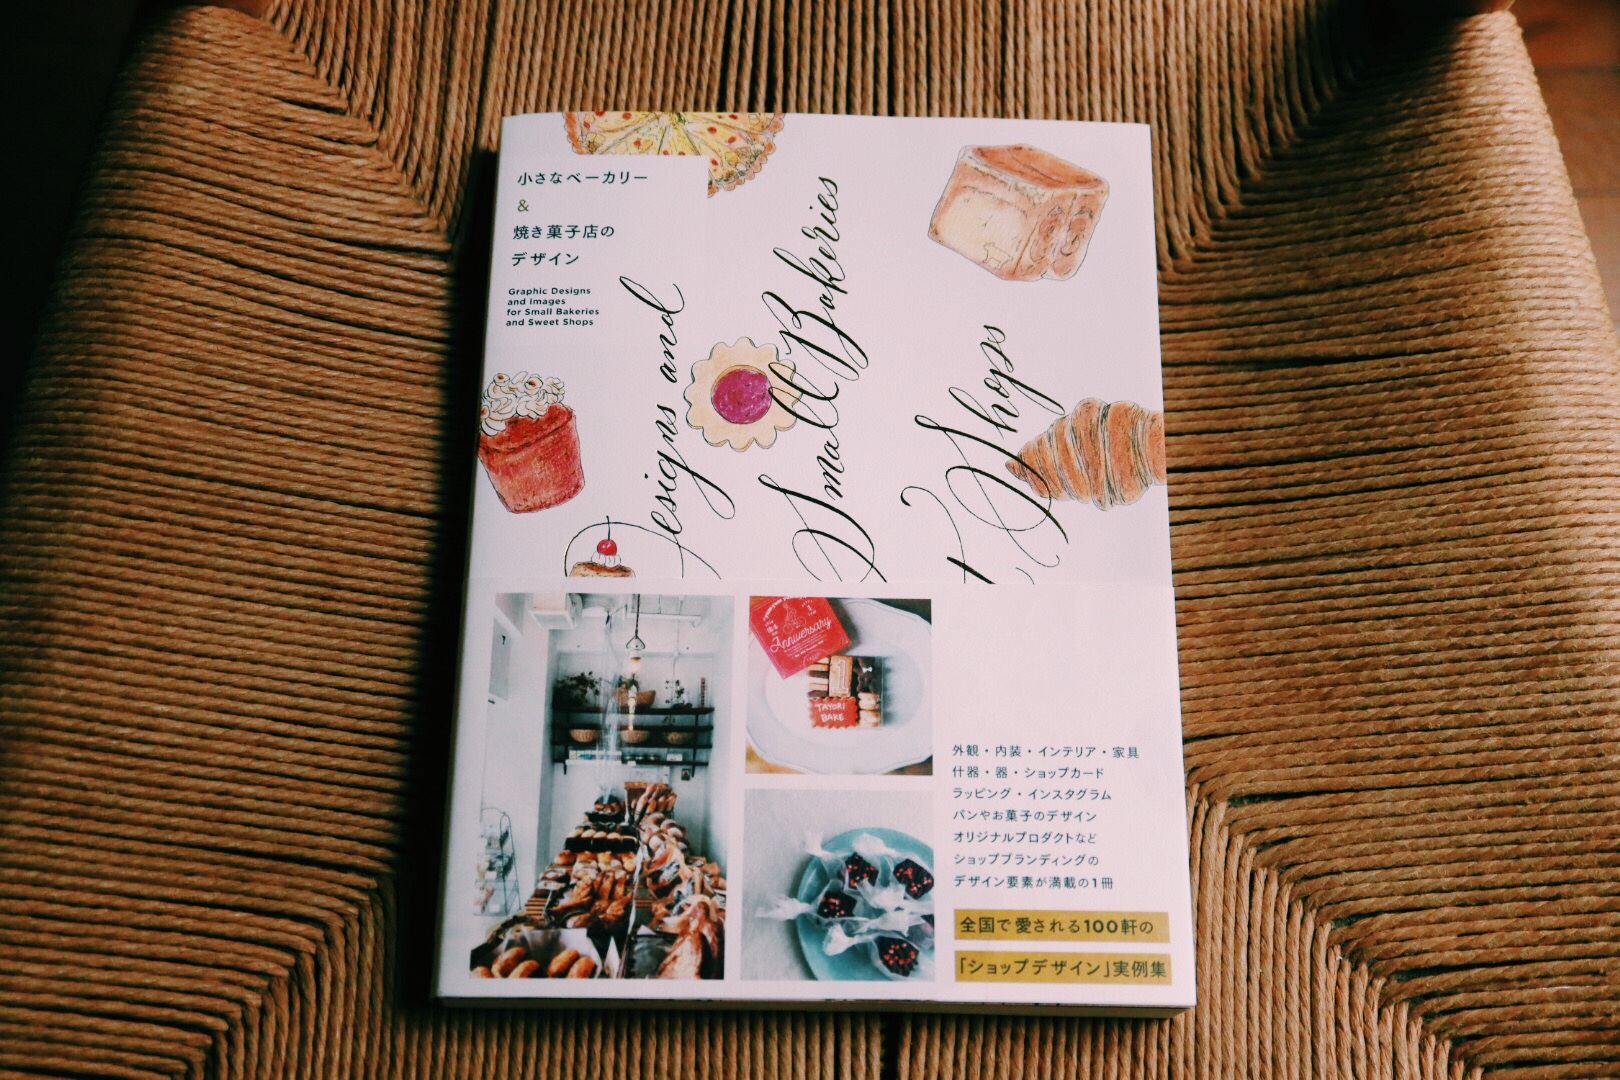 小さなベーカリー
&
焼き菓子店の
デザイン
Graphic Designs
and Images
for Small Bakeries
and Sweet Shops
Designs and
Small Bakeries
Shops
Anniversary
TAYORI
BAKE
外観・内装・インテリア・家具
什器・器・ショップカード
ラッピング・インスタグラム
パンやお菓子のデザイン
オリジナルプロダクトなど
ショップブランディングの
デザイン要素が満載の1冊
全国で愛される100軒の
「ショップデザイン」実例集